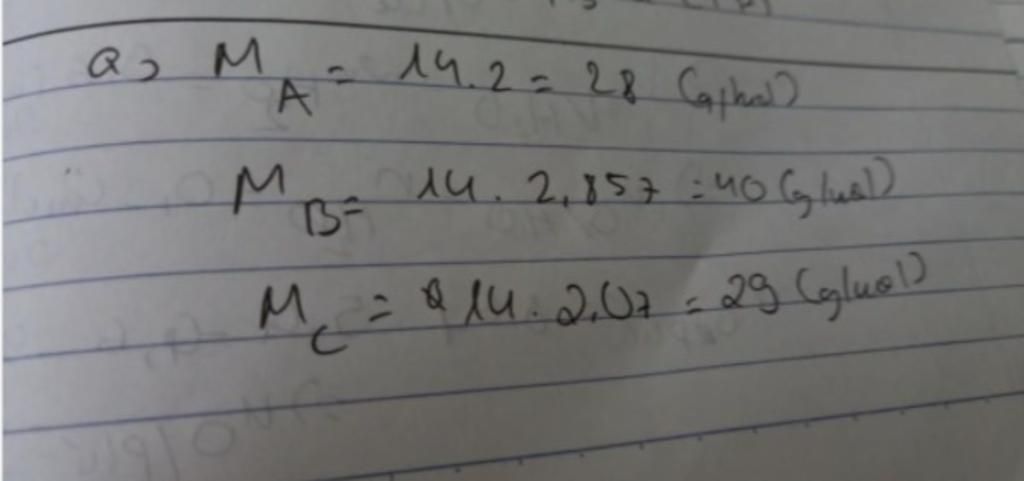 a, M A = 14.2 = 28 (g/mol)
M B = 14.2,857 = 40 (g/mol)
M C = 14.2,07 = 29 (g/mol)